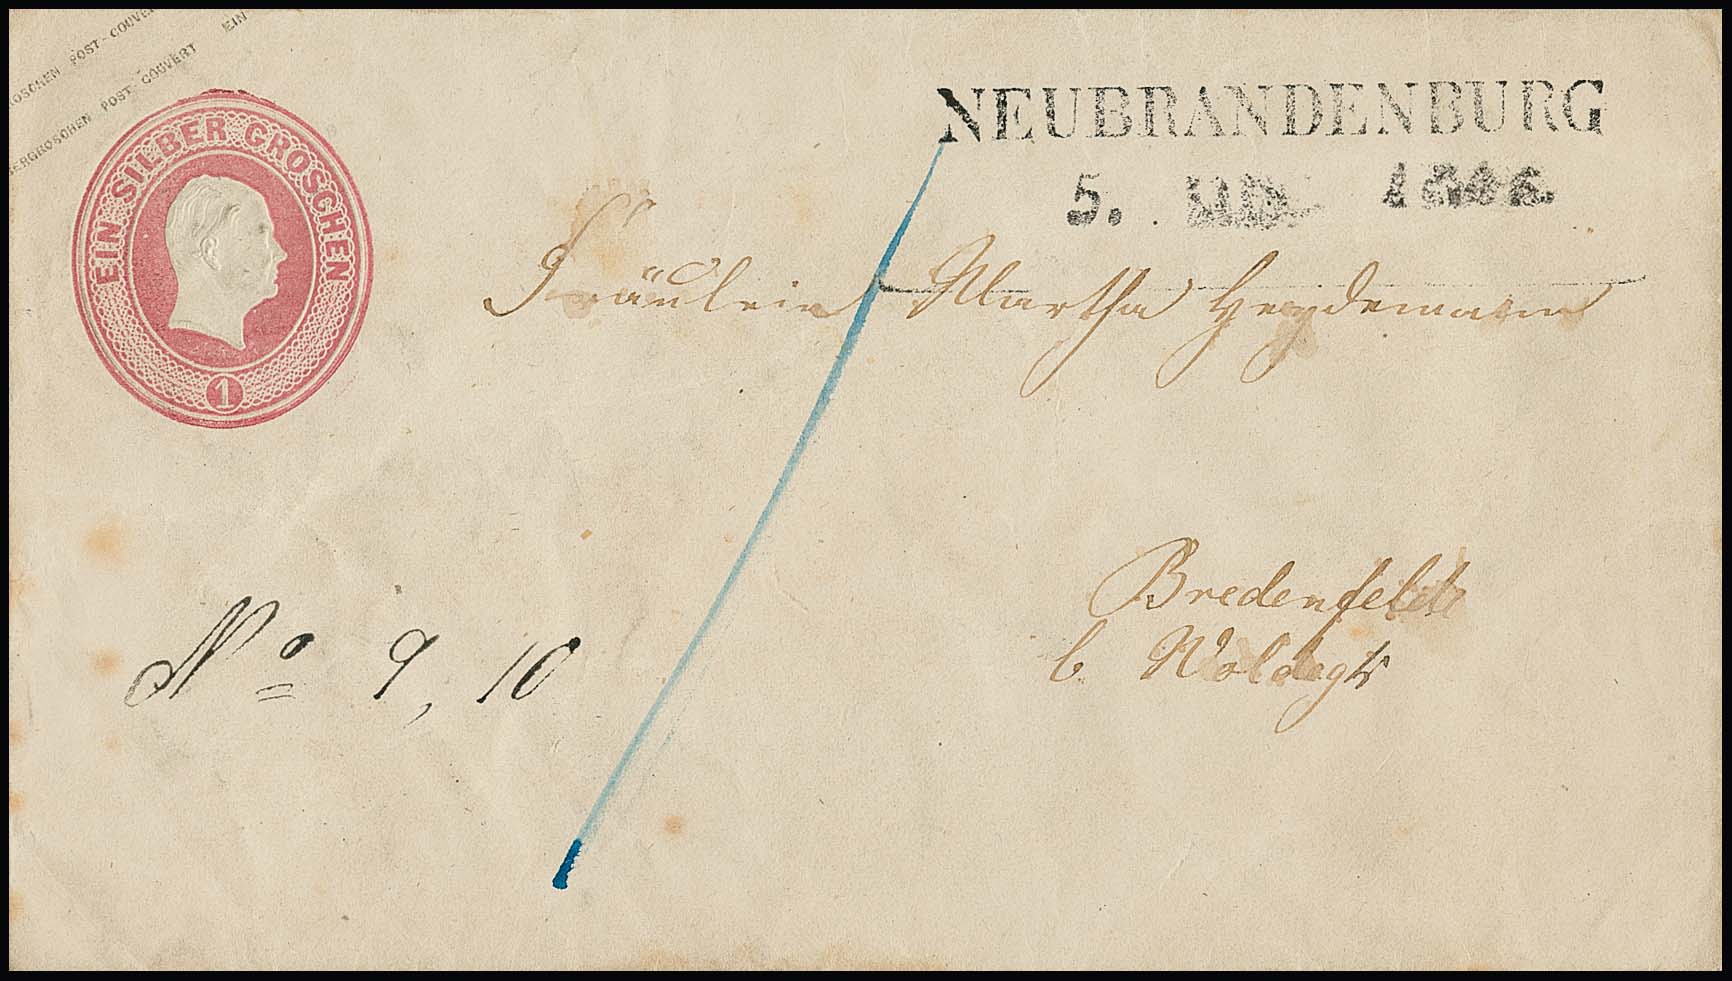 GROSCHEN POST-COUVERT
BERGROSCHEN POST-COUVERT EIN
EIN SILBER GROSCHEN
1
NEUBRANDENBURG
5.
Fräulein Martha Heydemann
Bredenfelde
b. Woldegk
No 9, 10